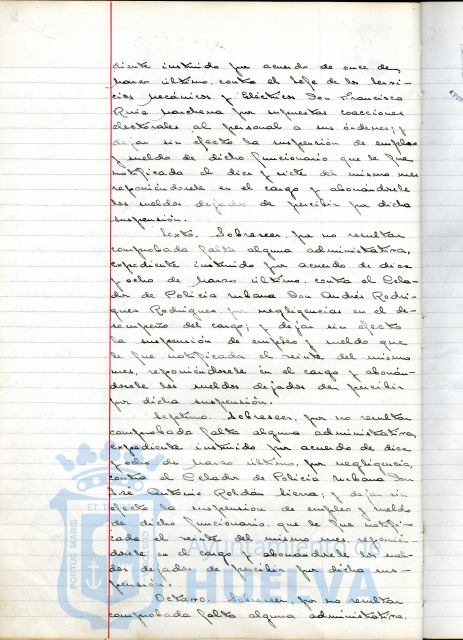 diente instruido por acuerdo de once de
marzo último, contra el Jefe de los Servi-
cios Mecánicos y Eléctricos Don Francisco
Ruiz Marchena por supuestas coacciones
electorales al personal a sus órdenes; y
dejar sin efecto la suspensión de empleo
y sueldo de dicho funcionario que le fue
notificada el diez y siete del mismo mes
reponiéndosele en el cargo y abonándosele
los sueldos dejados de percibir por dicha
suspensión.
Sexto. Sobreseer, por no resultar
comprobada falta alguna administrativa,
expediente instruido por acuerdo de diez
y ocho de marzo último, contra el Cela-
dor de Policía urbana Don Andrés Rodrí-
guez Rodríguez por negligencias en el de-
sempeño del cargo; y dejar sin efecto
la suspensión de empleo y sueldo que
le fue notificada el veinte del mismo
mes, reponiéndosele en el cargo y abonán-
dosele los sueldos dejados de percibir
por dicha suspensión.
Séptimo. Sobreseer, por no resultar
comprobada falta alguna administrativa,
expediente instruido por acuerdo de diez
y ocho de marzo último, por negligencia,
contra el Celador de Policía Urbana Don
José Antonio Roldán Sierra; y dejar sin
efecto la suspensión de empleo y sueldo
de dicho funcionario, que le fue notifi-
cada el veinte del mismo mes, reponién-
dosele en el cargo y abonándosele los suel-
dos dejados de percibir por dicha sus-
pensión.
Octavo. Sobreseer, por no resultar
comprobada falta alguna administrativa,
PORTUS MARIS
ET T
Ayuntamiento de
HUELVA